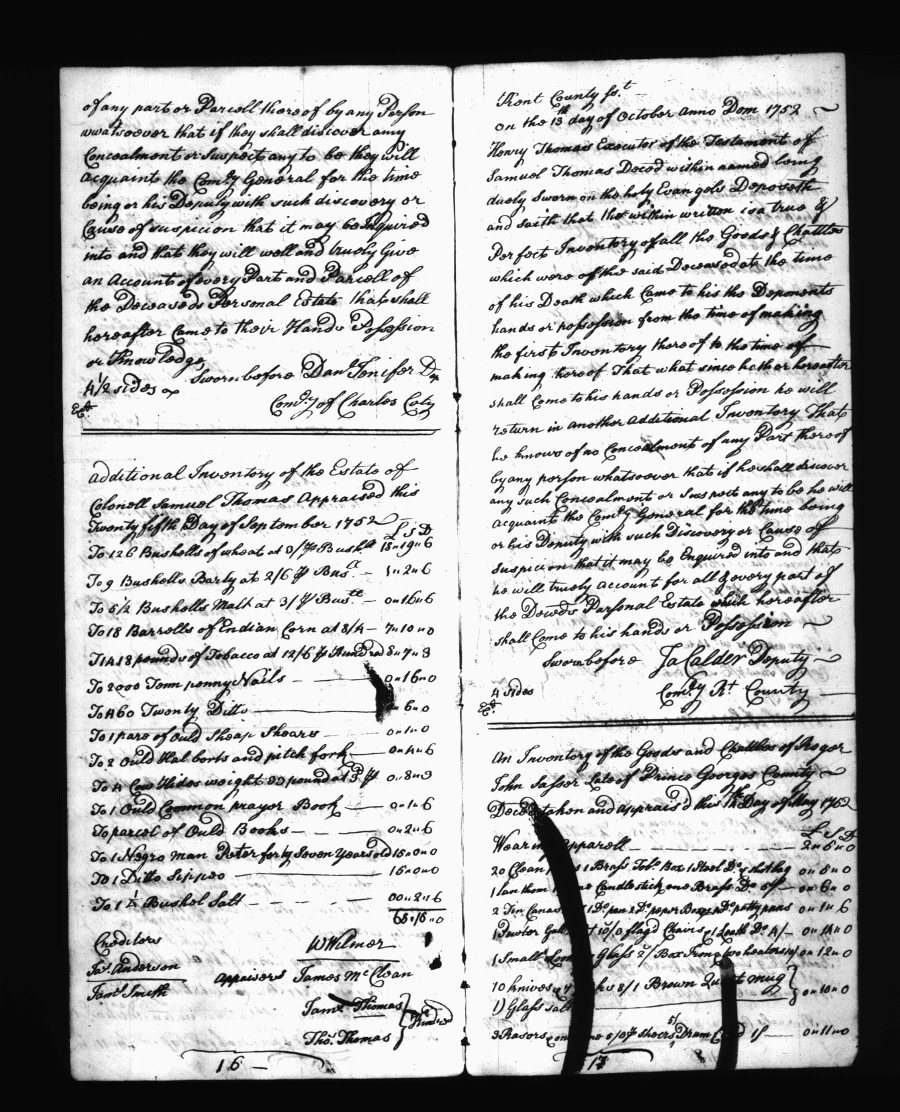 of any part or Parcell thereof by any Person
whatsoever that if they shall discover any
Concealment or Suspect any to be they will
acquaint the Comry General for the time
being or his Deputy with such discovery or
Cause of suspicion that it may be Inquired
into and that they will well and truly Give
an Account of every Part and Parcell of
the Deceaseds Personal Estate that shall
hereafter Come to their Hands Possession
or Knowledge
4 1/2 sides Sworn before Danl Jenifer Dy
Exd. Comry of Charles Coty
Additional Inventory of the Estate of
Colonell Samuel Thomas Appraised this
Twenty fifth Day of September 1752 L S D
To 126 Bushells of wheat at 3/ P Bushll 18 " 19 " 6
To 9 Bushells Barly at 2/6 P Busll 1 " 2 " 6
To 5 1/2 Bushells Malt at 3/ P Busll 0 " 16 " 6
To 18 Barrells of Endian Corn at 8/4 7 " 10 " 0
To pounds of Tobacco at 12/6 P Hundred 8 " 7 " 3
To 2000 Tenn penny Nails 0 " 16 " 0
To 460 Twenty Ditto 6 " 0
To 1 pare of Ould Sheap Shears 0 " 1 " 0
To 2 Ould Halborts and pitch fork 0 " 4 " 6
To 4 Cow Hides weight 33 pound at 3d P 0 " 8 " 3
To 1 Ould Common prayer Book 0 " 1 " 6
To parcel of Ould Books 0 " 2 " 6
To 1 Negro man Peter forty Seven Years old 15 " 0 " 0
To 1 Ditto Seppeo 15 " 0 " 0
To 1 1/4 Bushel Salt 00 " 2 " 6
68 " 16 " 0
Creditors WWilmer
Jas. Anderson appaisers James McClean
Saml Smith
Saml Thomas
Kindred
Tho. Thomas
16
Kent County Sst.
On the 13th day of October Anno Dom 1752
Henry Thomas Executor of the Testament of
Samuel Thomas Deced within named being
duely Sworn on the holy Evangels Deposeth
and saith that the within written is a true &
Perfect Inventory of all the Goods & Chattles
which were of the said Deceased at the time
of his Death which Came to his the Deponents
hands or possession from the time of making
the first Inventory thereof to the time of
making hereof That what since he hath or hereafter
shall Come to his hands or Possession he will
return in another Additional Inventory That
he knows of no Concealment of any Part thereof
by any person whatsoever that if he shall discover
any such Concealment or Suspect any to be he will
acquaint the Comry General for the time being
or his Deputy with such Discovery or Cause of
suspicion that it may be Enquired into and that
he will truely Account for all & every part of
the Deceds Personal Estate which hereafter
shall Come to his hands or Possession
Sworn before Ja Calder Deputy
4 sides Comry Kt County
Exd.
An Inventory of the Goods and Chattles of Roger
John Sasser Late of Prince Georges County
Deced taken and appraised this Day of May 1752
L S D
Wearing Apparell 2 " 5 " 0
20 1 Brass Tobo. Box 1 Steel Do. 0 " 5 " 0
1 lanthorn Candlestick one Brass Do. 0 " 6 " 0
2 Tin Canas 1 Do. pan 2 Do. peper Boxes Do. pattypans 0 " 1 " 6
Pewter 10/ flagd Chairs 1 Leath Do. 4/ 0 " 14 " 0
1 Small Glass 2/ Box Iron 0 " 12 " 0
10 knives 8/1 Brown Quart mug
0 " 10 " 0
1 Glass Salt
3 Rasors Dram 1/ 0 " 11 " 0
17